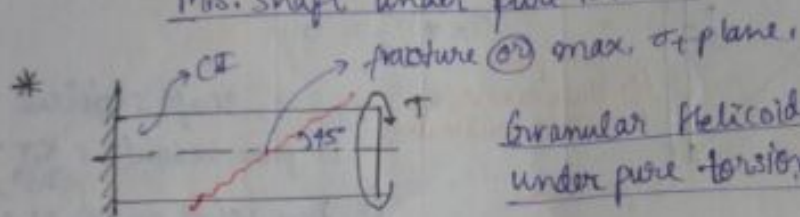 M.S. shaft under pure
* CI fracture (or) max. σt plane.
45° T
Granular Helicoid
under pure torsion